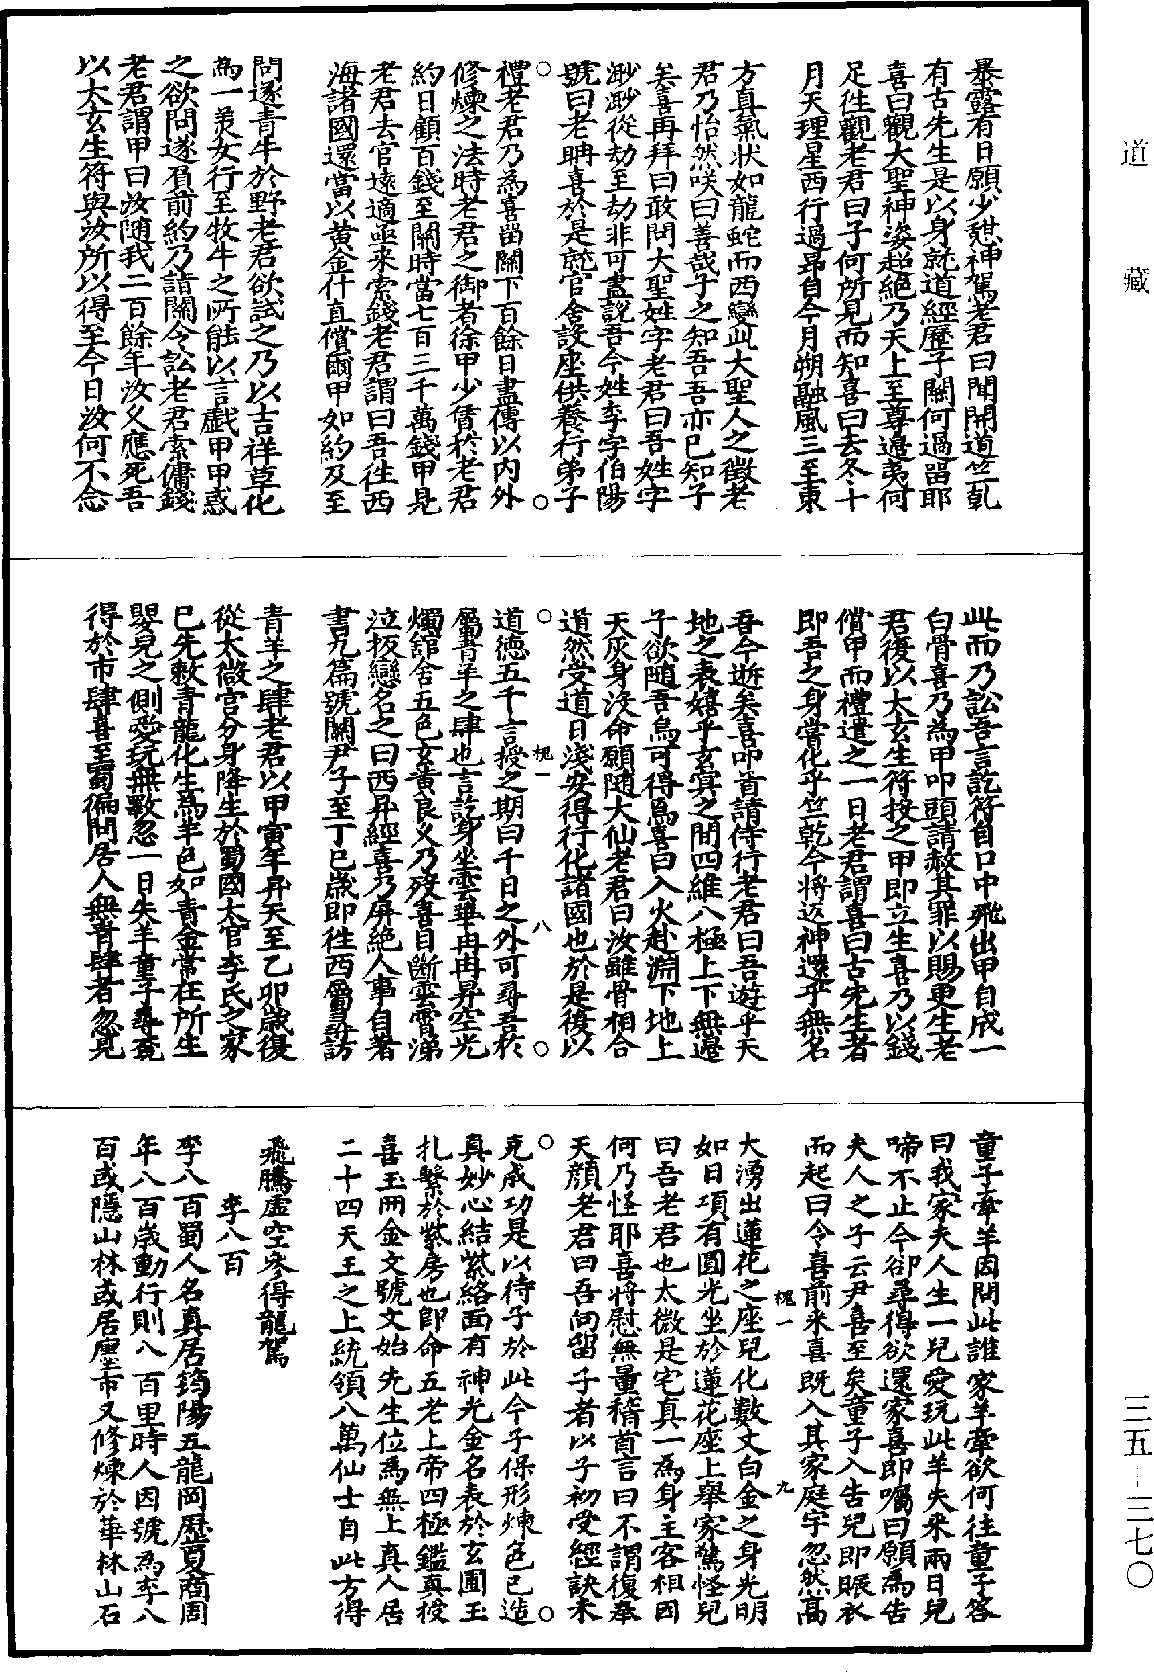 道藏
三五—三七〇
暴露有日願少憇神駕老君曰聞開道竺乹
有古先生是以身就道經歷子關何過畱耶
喜曰觀大聖神姿超絕乃天上至尊邊夷何
足徃觀老君曰子何所見而知喜曰去冬十
月天理星西行過昴自今月朔融風三至東
方真氣狀如龍蛇而西變此大聖人之徵老
君乃怡然咲曰善哉子之知吾吾亦已知子
矣喜再拜曰敢問大聖姓字老君曰吾姓字
渺渺從劫至劫非可盡說吾今姓李字伯陽
號曰老聃喜於是就官舍設座供養行弟子
禮老君乃為喜畱關下百餘日盡傳以內外
修煉之法時老君之御者徐甲少賃於老君
約日顧百錢至關時當七百三十萬錢甲見
老君去官逺適亟來索錢老君謂曰吾徃西
海諸國還當以黃金什直償爾甲如約及至
問遂青牛於野老君欲試之乃以吉祥草化
為一美女行至牧牛之所能以言戲甲甲惑
之欲問遂負前約乃詣關令訟老君索傭錢
老君謂甲曰汝随我二百餘年汝乆應死吾
以太玄生符與汝所以得至今日汝何不念
此而乃訟吾言訖符自口中飛出甲自成一
白骨喜乃為甲叩頭請赦其罪以賜更生老
君復以太玄生符投之甲即立生喜乃以錢
償甲而禮遣之一日老君謂喜曰古先生者
即吾之身嘗化乎竺乾今將返神還乎無名
吾今逝矣喜叩首請侍行老君曰吾遊乎天
地之表嬉乎玄冥之間四維八極上下無邊
子欲随吾烏可得焉喜曰入火赴淵下地上
天灰身沒命願隨大仙老君曰汝雖骨相合
道然受道日淺安得行化諸國也於是復以
道德五千言授之期曰千日之外可尋吾於
槐一
八
屬青羊之肆也言訖身坐雲華冉冉昇空光
燭舘舍五色玄黃良乆乃歿喜目斷雲霄涕
泣扳戀名之曰西昇經喜乃屏絕人事自著
書九篇號關尹子至丁巳歲即徃西蜀訪
青羊之肆老君以甲寅年昇天至乙卯歲復
從太微宮分身降生於蜀國太官李氏之家
巳先敕青龍化生為羊色如青金常在所生
嬰兒之側愛玩無斁忽一日失羊童子尋覔
得於市肆喜至蜀徧問居人無青肆者忽見
童子牽羊因問此誰家羊牽欲何往童子答
曰我家夫人生一兒愛玩此羊失來兩日兒
啼不止今卻尋得欲還家喜即囑曰願為告
夫人之子云尹喜至矣童子入告兒即振衣
而起曰令喜前來喜既入其家庭宇忽然高
槐一
九
大湧出蓮花之座兒化數丈白金之身光明
如日項有圓光坐於蓮花座上舉家驚怪兒
曰吾老君也太微是宅真一為身主客相因
何乃怪耶喜將慰無量稽首言曰不謂復奉
天顏老君曰吾向留子者以子初受經訣未
克成功是以待子於此今子保形煉色已造
真妙心結紫絡面有神光金名表於玄圃玉
札繫於紫房也即命五老上帝四極鑑真授
喜玉冊金文號文始先生位為無上真人居
二十四天王之上統領八萬仙士自此方得
飛騰虛空參得龍駕
李八百
李八百蜀人名真居筠陽五龍岡歷夏商周
年八百歲動行則八百里時人因號為李八
百或隱山林或居廛市又修煉於華林山石